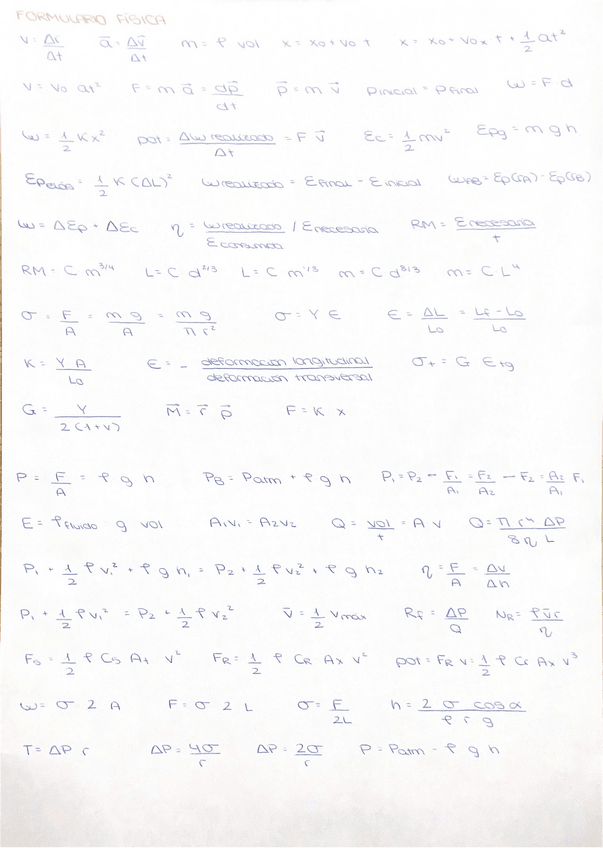 FORMULARIO FÍSICA
v = Δr/Δt   a⃗ = Δv⃗/Δt   m = ρ vol   x = x0 + v0 t   x = x0 + v0x t + 1/2 at²
v = v0 at²   F = m a⃗ = dp⃗/dt   p⃗ = m v⃗   pinicial = pfinal   ω = F d
ω = 1/2 Kx²   pot = Δω realizado/Δt = F v⃗   Ec = 1/2 mv²   Epg = m g h
Epelás = 1/2 K (ΔL)²   ω realizado = Efinal - Einicial   ωAB = Ep(rA) - Ep(rB)
ω = ΔEp + ΔEc   η = ω realizado/Econsumida / Enecesaria   RM = Enecesaria/t
RM = C m^3/4   L = C d^2/3   L = C m^1/3   m = C d^8/3   m = C L⁴
σ = F/A = m g/A = m g/π r²   σ = Y ε   ε = ΔL/L0 = Lf - L0/L0
K = Y A/L0   ε = - deformacion longitudinal/deformacion transversal   σt = G εtg
G = Y/2(1+v)   M⃗ = r⃗ p⃗   F = K x
P = F/A = ρ g h   PB = Patm + ρ g h   P1 = P2 - F1/A1 = F2/A2 - F2 = A2/A1 F1
E = ρfluido g vol   A1v1 = A2v2   Q = vol/t = A v   Q = π r⁴ ΔP/8 η L
P1 + 1/2 ρ v1² + ρ g h1 = P2 + 1/2 ρ v2² + ρ g h2   η = F/A = Δv/Δh
P1 + 1/2 ρ v1² = P2 + 1/2 ρ v2²   v̄ = 1/2 vmax   Rf = ΔP/Q   NR = ρ v̄ r/η
Fs = 1/2 ρ Cs At v²   FR = 1/2 ρ CR Ax v²   pot = FR v = 1/2 ρ Cr Ax v³
ω = σ 2 A   F = σ 2 L   σ = F/2L   h = 2 σ cos α/ρ r g
T = ΔP r   ΔP = 4σ/r   ΔP = 2σ/r   P = Patm - ρ g h